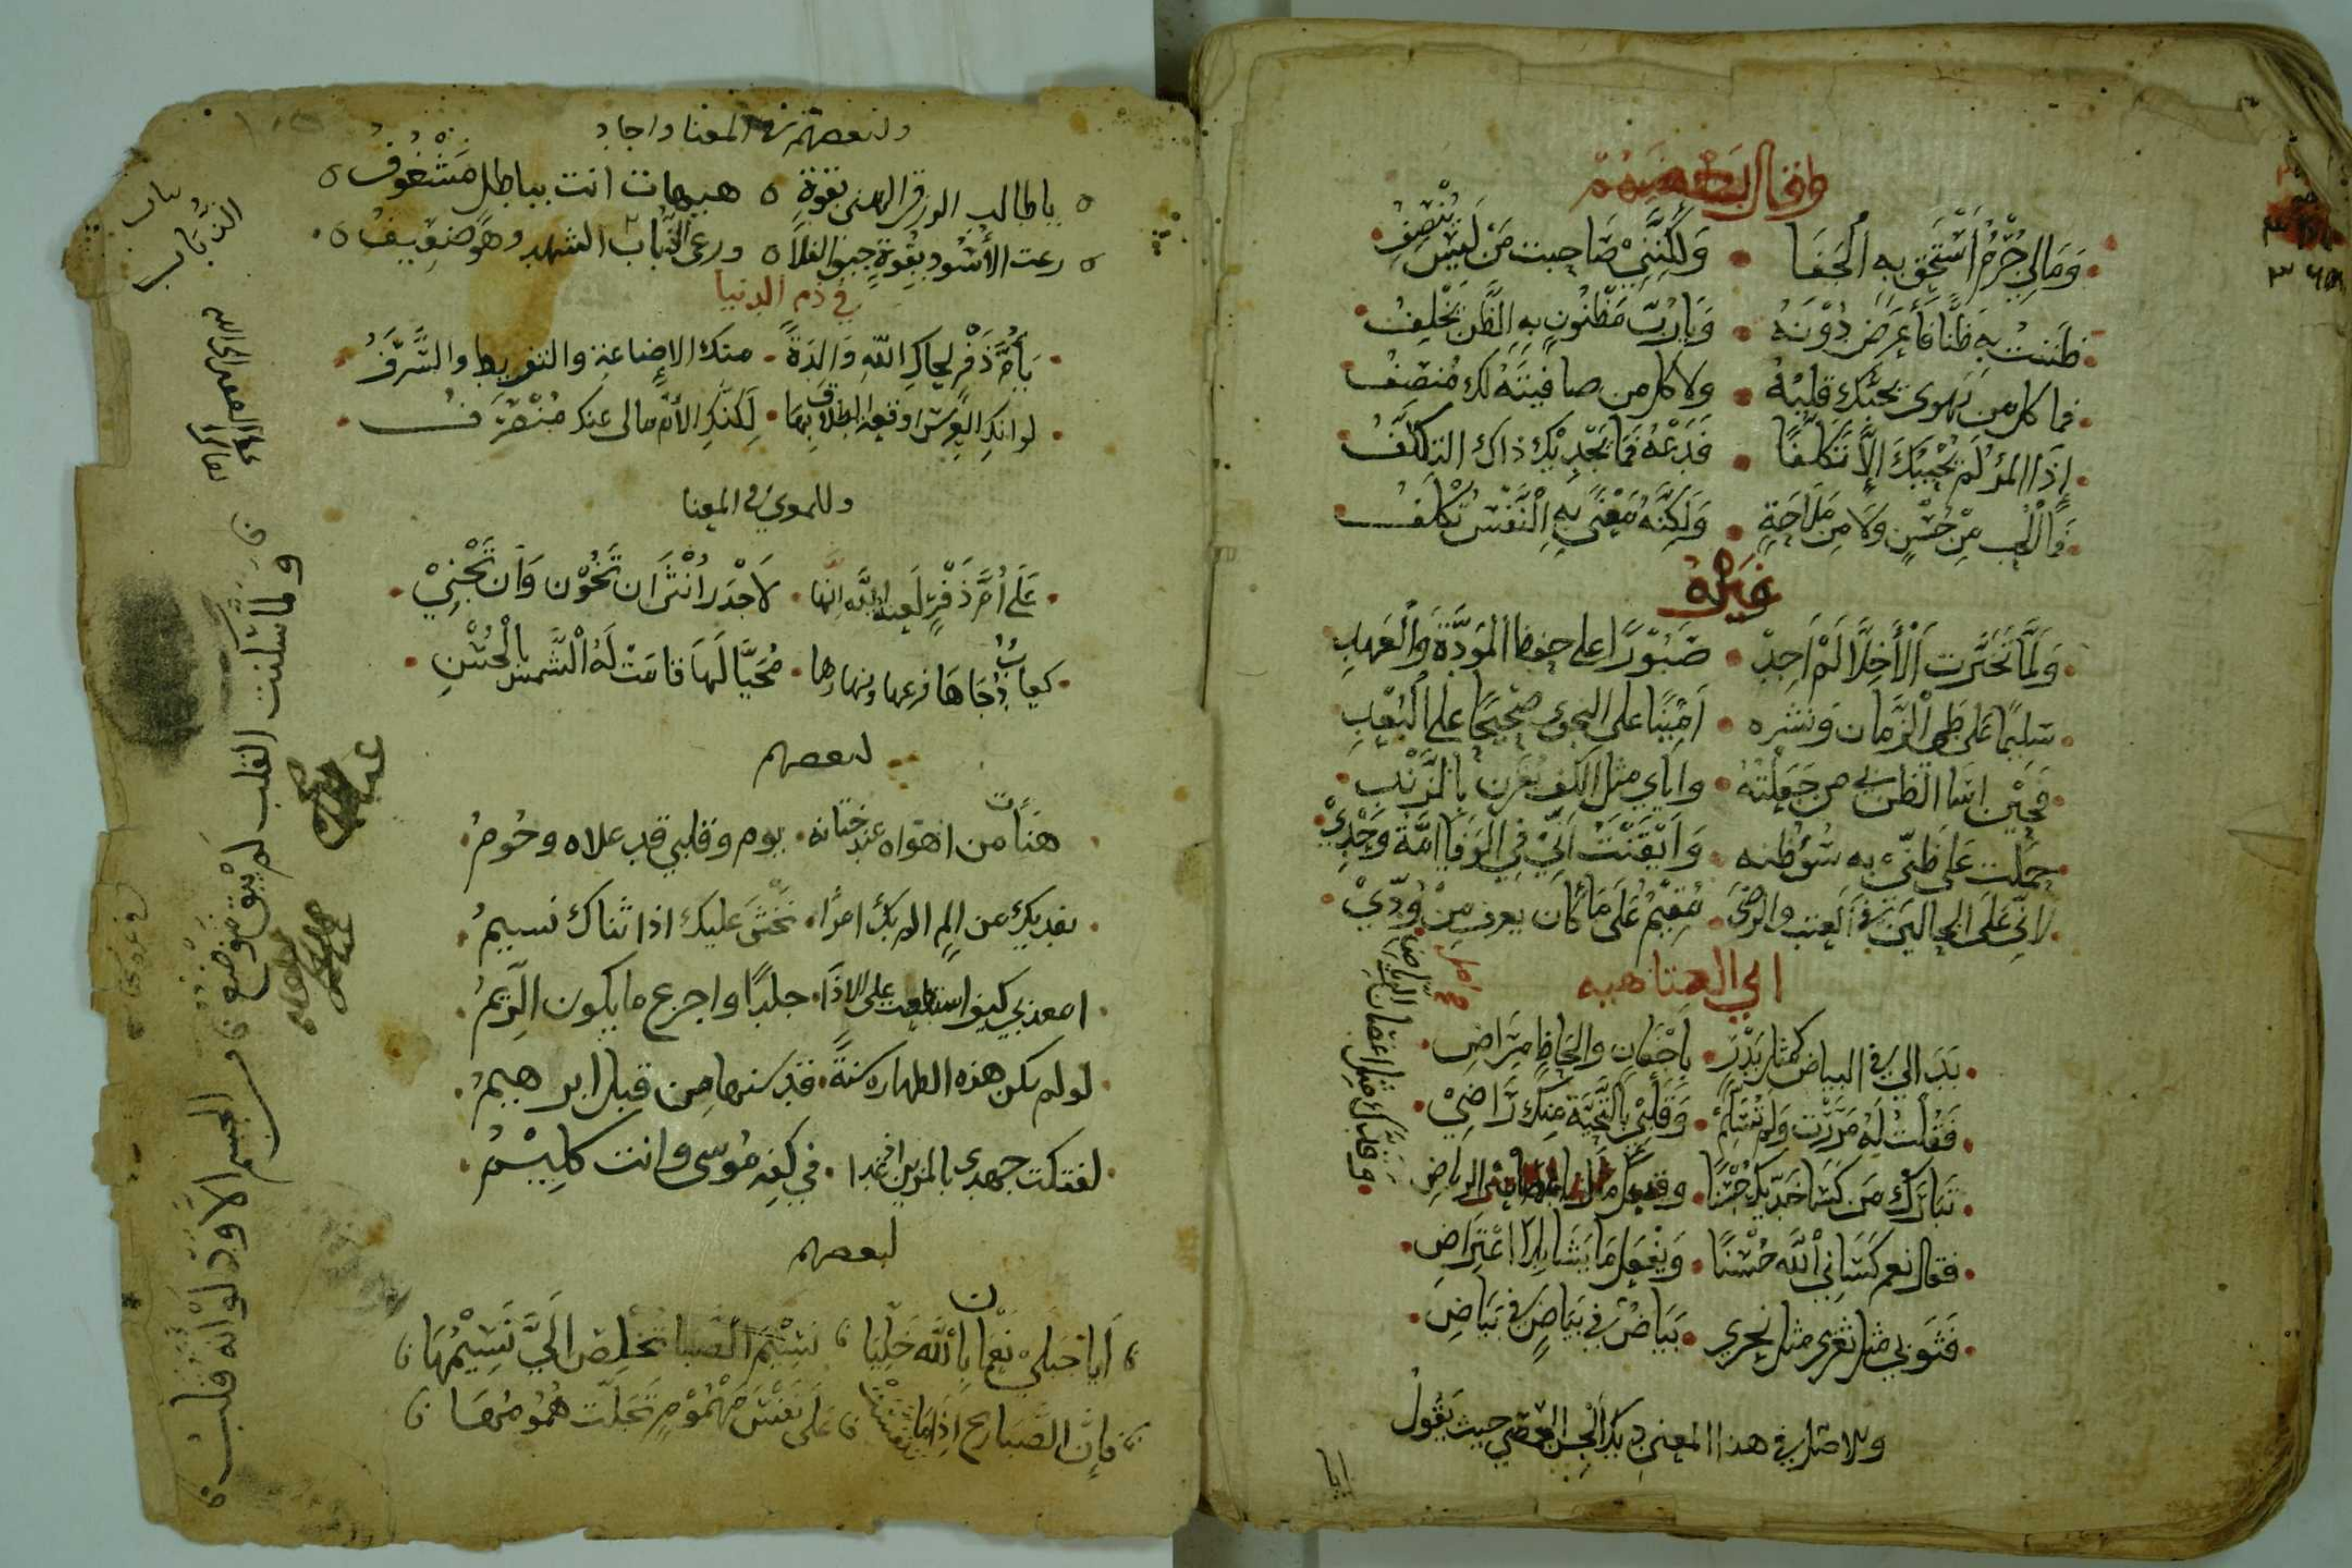 وقال بعضهم
وَمَا لِي جُرْمٌ أَسْتَحِق بِهِ الْجَفَا • وَلَكِنَّنِيْ صَاحبت مَنْ لَيْسَ يُنْصِفُ
ظَنَنتُ بِهِ ظَنًّا فَأَعرَضَ دُوْنَهُ • وَيَا رُبَّ مَظْنُونٍ بِهِ الظَّن يُخْلِفُ
فما كل من تهوى يحبُّك قلبُهُ • ولا كل من صافيتَهُ لك مُنصِفُ
إِذَا المرؤ لَم يُحْبِبْكَ إِلَّا تَكَلّفًا • فَدَعْهُ فَمَا يُجْدِيْك ذاك التكلّفُ
فَمَا الْحُب مِنْ حُسْنٍ وَلَا مِن مَلَاحَةٍ • وَلَكِنَّهُ مَعْنًى بِهِ النَّفْس تَكْلَفُ
غَيْرُهُ
وَلَمَّا تَخَيَّرت الْأَخِلَّا لَمْ اَجِدْ • صَبُوْرًا على حفظ المودَّة وَالْعَهدِ
سَلِيمًا عَلى طَي الزَّمان وَنشره • اَمِيْنًا على النجوى صَحِيْحًا على البُعْدِ
فَحِيْن اسَا الظن بي من جَعَلْتهُ • واياي مثل الكف بالزَّنْدِ
حملت عَلى ظَنّي به سُوْ ظنه • وَاَيْقَنْتُ اَنِّي فِي الوَفَا امَّة وَحْدِيْ
لاني عَلَى الحالين في العَتب والرضَى • مُقِيْمٌ عَلَى مَا كَانَ يعرف مِنْ وُدِّيْ
ابي العتاهيه
بَدَا لي في البياض كمثل بَدْرٍ • بِاَجْفَانٍ والحَاظٍ مِرَاضِ
فَقُلْتُ لَهُ مَرَرْت وَلَم تُسَلِّمْ • وَقَلْبِيْ بِالتَّحِيَّة مِنك رَاضِيْ
تَبَارَك مَن كَسَا خَدَّيك حُسْنًا •
وقدك مثل اغصان الرياض
فقال نعم كَسَانِي اللَّه حُسْنًا • وَيفْعَل مَا يَشَا بِلَا اعْتِرَاضِ
فَثوبي مثل ثغري مثل نحري • بَيَاضٌ فِي بَيَاضٍ فِي بَيَاضِ
في هذا المعنى حيث يَقُولُ
ايا
ولبعضهم في المعنا واجاد
يا طالب الرزق الهني بقوةٍ ٥ هيهات انت بباطل مَشْغُوفُ ٥
رعت الأُسُود بِقُوةٍ جيف الفلا ٥ ورعى الذُّبَابُ الشهد وهو ضَعِيفُ ٥
في ذم الدنيا
يَا أُمَّ ذَفْرٍ لحاكِ اللَّه وَالدَةً • منك الإضاعة والتفريط والسَّرَفُ
لو انكِ العِرس اوقعت الطلاق بها • لَكنكِ الأُم مالي عنك مُنْصَرَفُ
وللمعري في المعنا
عَلَى أُمِّ ذَفْرٍ لَعنة اللَّه انها • لَاجْدَر اُنْثَى ان تَخُوْن وَاَن تَجْنِيْ
كعابٌ دُجَاهَا فرعها ونهارها • مُحَيًّا لَهَا قامَتْ لَهُ الشَّمس بِالْحُسْنِ
لبعضهم
عند ختانه • يوم وقلبي قد علاه وجُومُ
يفديك من الم الم بك • نَخْشَى عليك اذا ثناك نسيمُ
امعذبي كيف استطعت على الاذا • جلدًا واجزع ما يكون الرِّيمُ
لو لم تكن هذه الطهاره سُنةً • قد سنها من قبل ابرهيمُ
لفتكت جهدي بالمزين اذ غدا • في كفهِ مُوسى وانت كلِيْمُ
لبعضهم
أَيَا جَبَلَيْ نَعْمَانَ بِاللَّه خَلِّيَا • نَسِيْمَ الصَّبا تخلِص الَيَّ نَسِيْمُهَا
فَإِنَّ الصَّبا رِيح اِذَا مَا تنفسَتْ • عَلَى نَفْسِ مَهْمُوْمٍ تَجَلَّت هُمُومُهَا
وما سكنت القلب لم يَبْق مَوْضع في الجسم الا ودَّ لو انه قلب